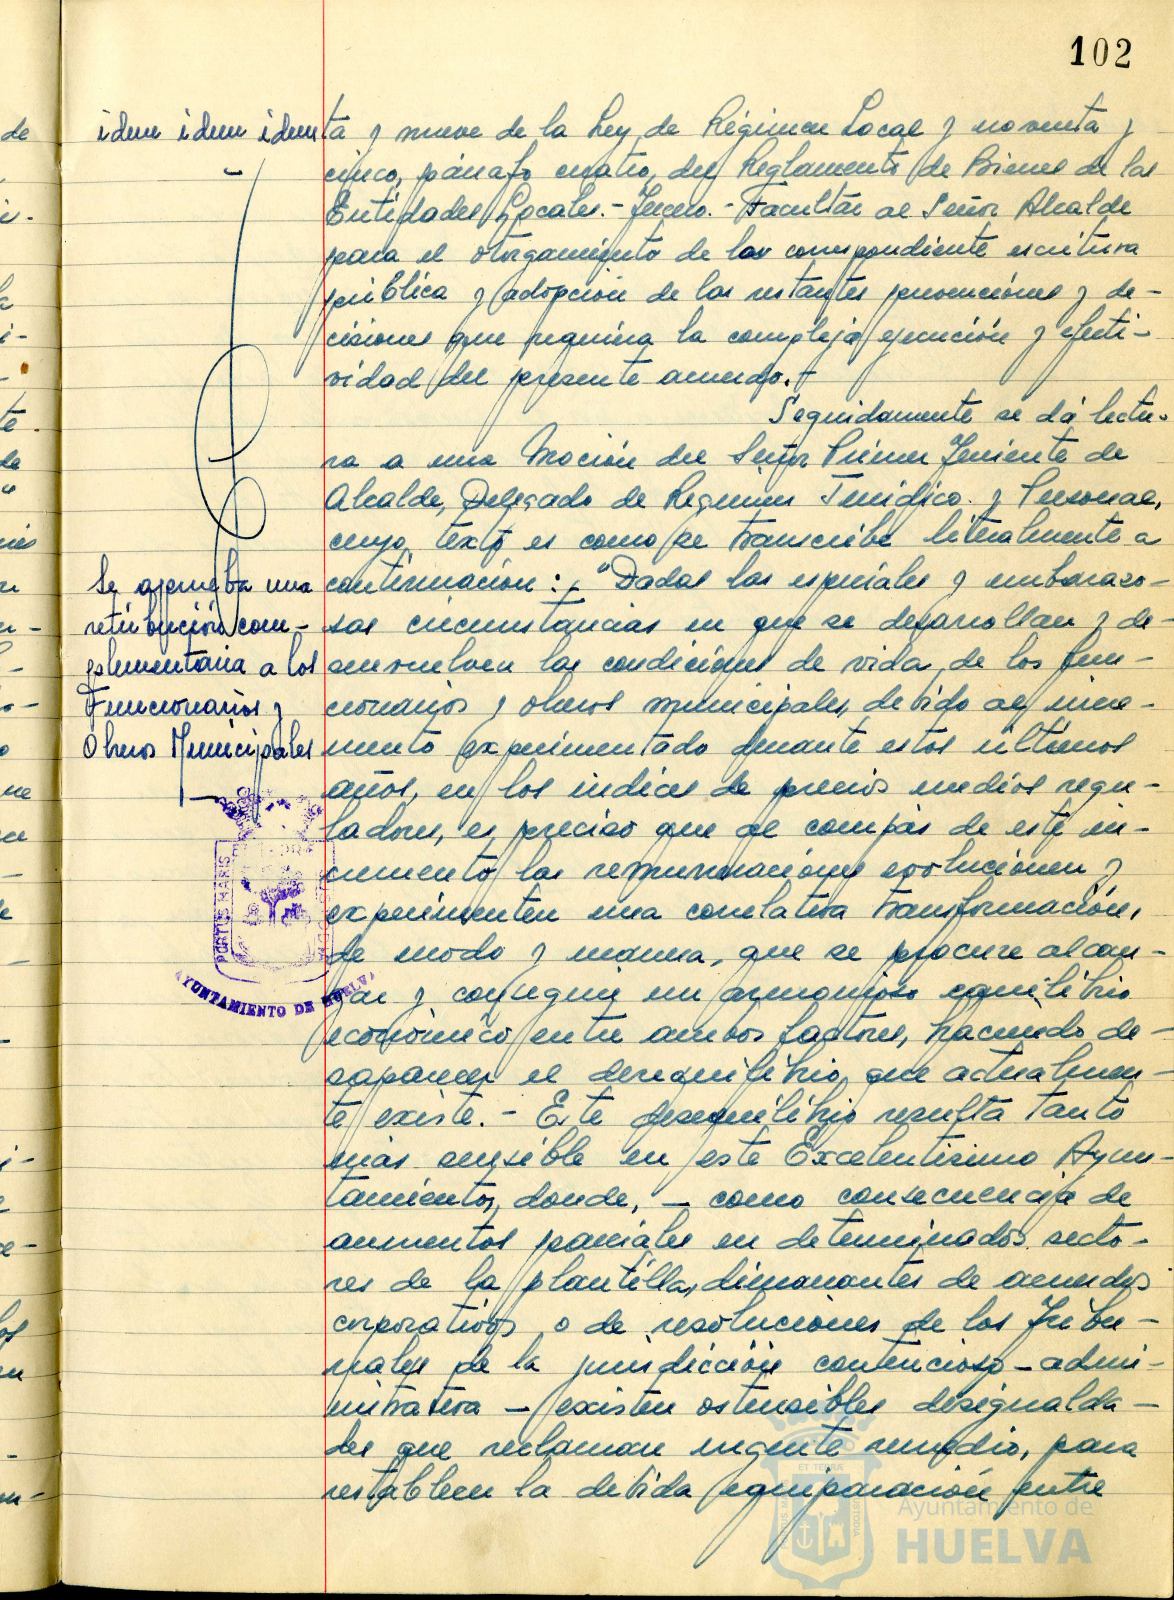 102
idem idem idem
ta y nueve de la Ley de Régimen Local y noventa y
cinco, párrafo cuatro, del Reglamento de Bienes de las
Entidades Locales.- Tercero.- Facultar al Señor Alcalde
para el otorgamiento de las correspondiente escritura
pública y adopción de las restantes prevenciones y de-
cisiones que requiera la compleja ejecución y efecti-
vidad del presente acuerdo.-
Seguidamente se dá lectu-
ra a una Moción del Señor Primer Teniente de
Alcalde, Delegado de Régimen Jurídico y Personal,
cuyo texto es como se transcribe literalmente a
continuación: "Dadas las especiales y embarazo-
sas circunstancias en que se desarrollan y de-
senvuelven las condiciones de vida, de los fun-
cionarios y obreros municipales, debido al incre-
mento experimentado durante estos últimos
años, en los índices de precios medios regu-
ladores, es preciso que al compás de este in-
cremento las remuneraciones evolucionen y
experimenten una correlativa transformación,
de modo y manera, que se procure alcan-
zar y conseguir un armonioso equilibrio
económico entre ambos factores, haciendo de-
saparecer el desequilibrio que actualmen-
te existe.- Este desequilibrio resulta tanto
más sensible en este Excelentísimo Ayun-
tamiento, donde, - como consecuencia de
aumentos parciales en determinados secto-
res de la plantilla, dimanantes de acuerdos
corporativos o de resoluciones de los Tribu-
nales de la jurisdicción contencioso-admi-
nistrativa - existen ostensibles desigualda-
des que reclaman urgente remedio, para
restablecer la debida equiparación entre
Se aprueba una
retribución com-
plementaria a los
Funcionarios y
Obreros Municipales
PORTUS MARIS
AYUNTAMIENTO DE HUELVA
Ayuntamiento de
HUELVA